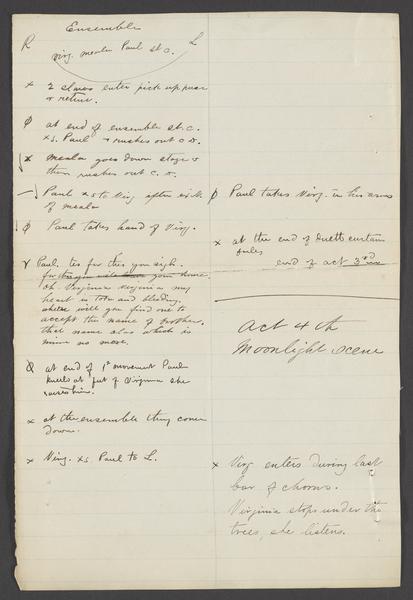 Ensemble
R Virg. Meala Paul st C. L
x 2 slaves enter pick up purse
& retire.
ϕ at end of ensemble st. C.
xs. Paul & rushes out C.D.
x Meala goes down stage &
then rushes out C.D.
Paul xs to Virg after exit
of Meala
ϕ Paul takes hand of Virg.
x Paul. tes for this you sigh.
your home
Oh Virginia Virginia my
heart is torn and bleeding.
where will you find one to
accept the name of brother.
that name alas which is
mine no more.
at end of 1st movement Paul
kneels at feet of Virginia she
raises him.
x at the ensemble they come
down.
x Virg. xs. Paul to L.
ϕ Paul takes Virg. in his arms
x at the end of duett curtain
falls
end of act 3rd
Act 4th
Moonlight scene
x Virg enters during last
bar of chorus.
Virginia stops under the
trees, she listens.